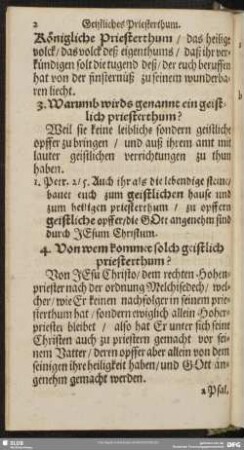 2 Geistliches Priesterthum.
Königliche Priesterthum / das heilige
volck / das volck deß eigenthums / daß ihr ver-
kündigen solt die tugend deß / der euch beruffen
hat von der finsternüß zu seinem wunderba-
ren liecht.
3. Warumb wirds genannt ein geist-
lich priesterthum?
Weil sie keine leibliche sondern geistliche
opffer zu bringen / und auß ihrem amt mit
lauter geistlichen verrichtungen zu thun
haben.
1. Petr. 2/5. Auch ihr als die lebendige steine/
bauet euch zum geistlichen hause und
zum heiligen priesterthum / zu opffern
geistliche opffer/die GOtt angenehm sind
durch JEsum Christum.
4. Von wem kommet solch geistlich
priesterthum?
Von JEsu Christo / dem rechten Hohen-
priester nach der ordnung Melchisedech/ wel-
cher / wie Er keinen nachfolger in seinem prie-
sterthum hat / sondern ewiglich allein Hoher-
priester bleibet / also hat Er unter sich seine
Christen auch zu priestern gemacht vor sei-
nem Vatter / deren opffer aber allein von dem
seinigen ihre heiligkeit haben / und GOtt an-
genehm gemacht werden.
2 Psal.
SLUB
DFG